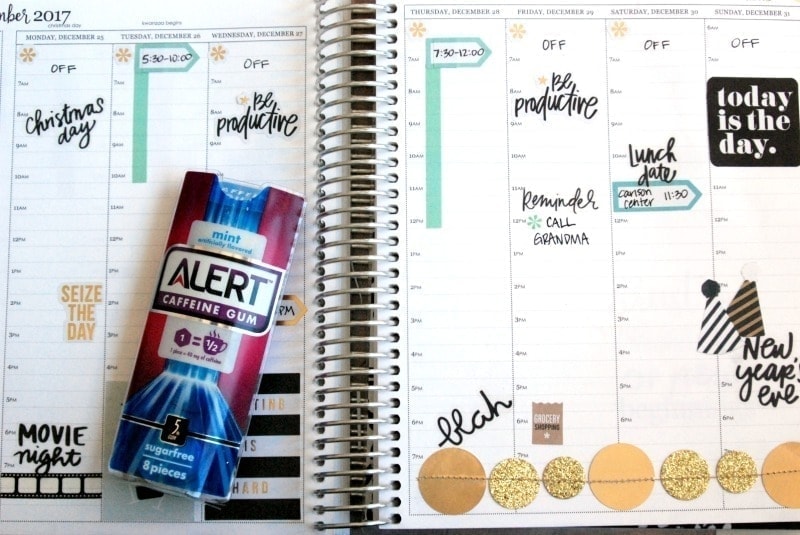 mber 2017
christmas day
kwanzaa begins
MONDAY, DECEMBER 25
TUESDAY, DECEMBER 26
WEDNESDAY, DECEMBER 27
OFF
5:30-10:00
OFF
7AM
8AM
9AM
10AM
11AM
12PM
1PM
2PM
3PM
4PM
5PM
6PM
7PM
Christmas
day
Be
productive
SEIZE
THE
DAY
PM
MOVIE
night
TING
IS
HARD
mint
artificially flavored
ALERT
CAFFEINE GUM
1 = 1/2
1 piece = 40 mg of caffeine
5
GUM
sugarfree
8 pieces
THURSDAY, DECEMBER 28
FRIDAY, DECEMBER 29
SATURDAY, DECEMBER 30
SUNDAY, DECEMBER 31
6AM
7:30-12:00
OFF
OFF
OFF
7AM
8AM
9AM
10AM
11AM
12PM
1PM
2PM
3PM
4PM
5PM
6PM
7PM
Be
productive
today
is the
day.
Lunch
date
carlson
center
11:30
Reminder
CALL
GRANDMA
New
year's
eve
blah
GROCERY
SHOPPING